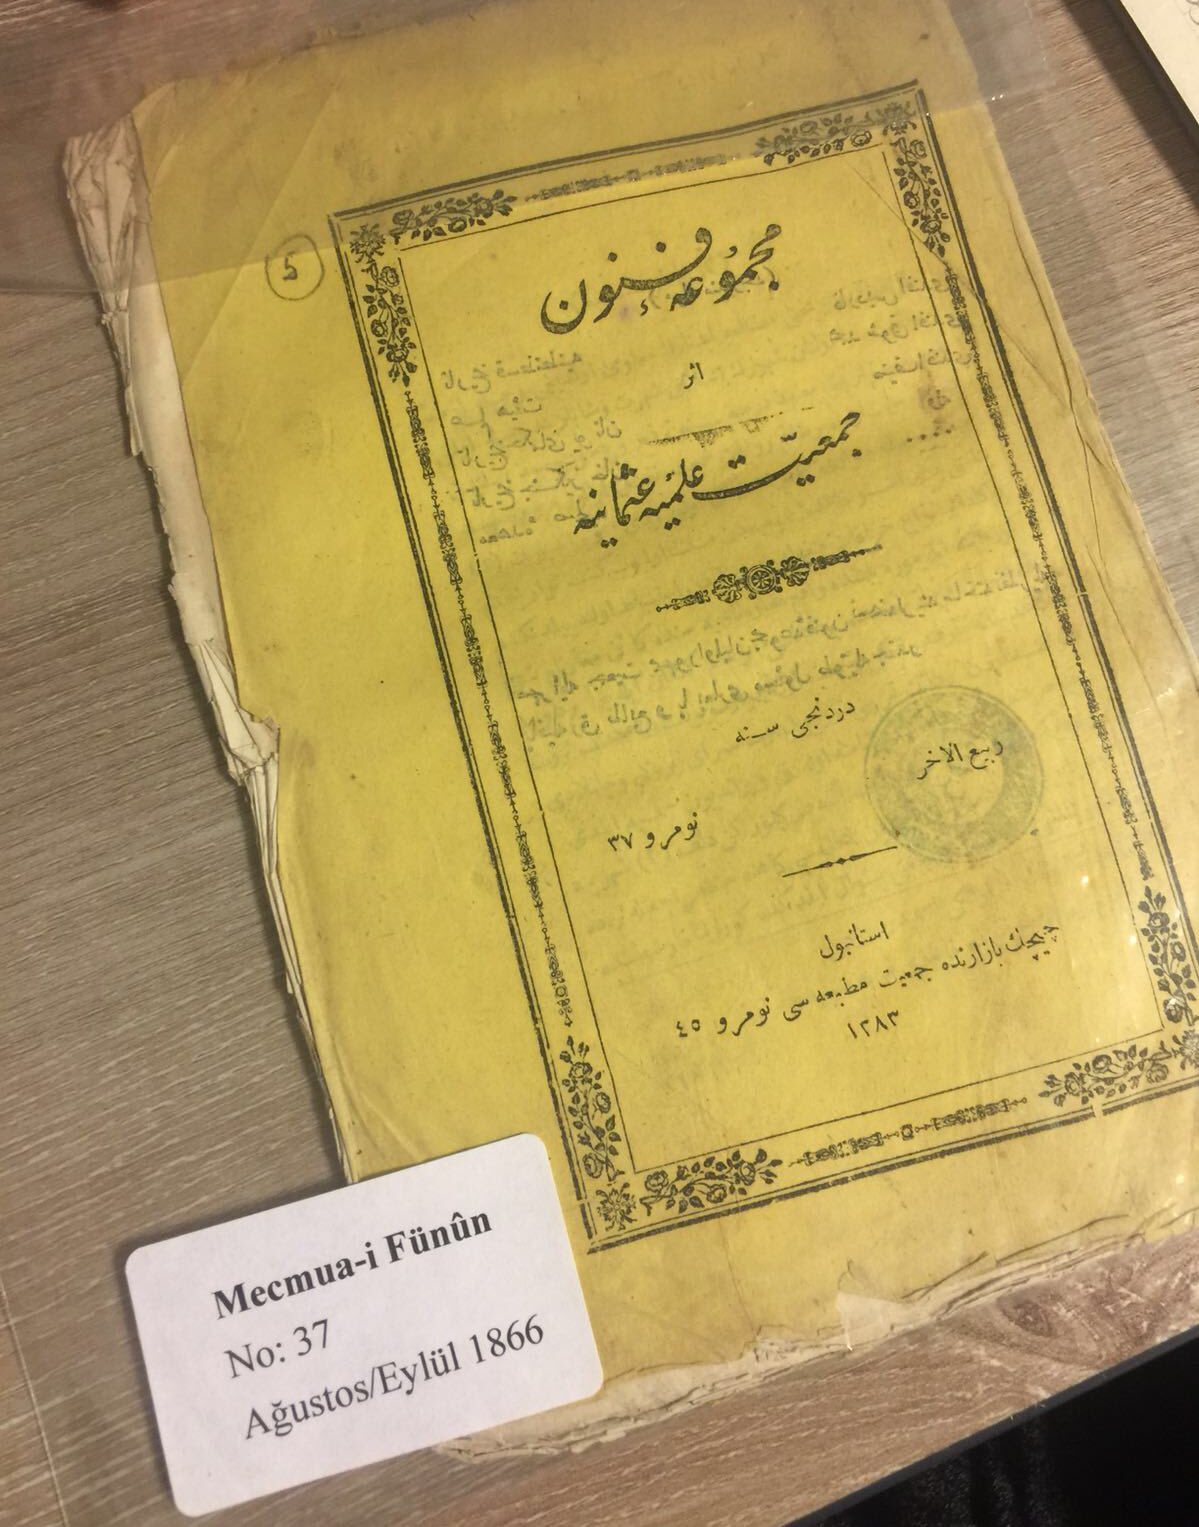 5
مجموعهٔ فنون
اثر
جمعیّت علمیّه عثمانیه
دردنجی سنه
ربیع الاخر
نومرو ۳۷
استانبول
چیچك بازارنده جمعیت مطبعه سی نومرو ٤٥
۱۲۸۳
Mecmua-i Fünûn
No: 37
Ağustos/Eylül 1866